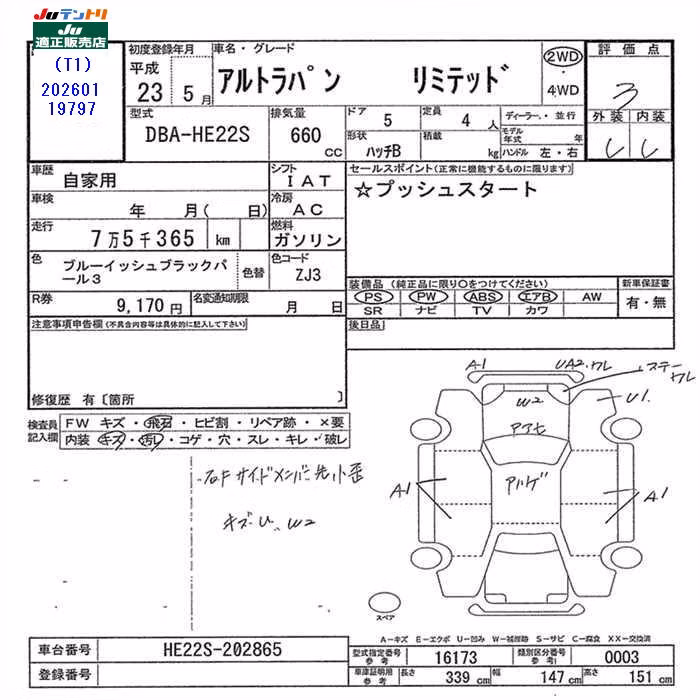 JUテントリ
JU
適正販売店
(T1)
202601
19797
初度登録年月
平成
23 5月
車名・グレード
アルトラパン リミテッド
2WD
・
4WD
評価点
3
外装 内装
型式
DBA-HE22S
排気量
660
CC
ドア 5
定員 4 人
ディーラー・並行
形状 ハッチB
積載 kg
モデル年式 年
ハンドル 左・右
車歴
自家用
シフト
IAT
セールスポイント(正常に機能するものに限ります)
☆プッシュスタート
車検
年 月( 日)
冷房
AC
走行
7万5千365 km
燃料
ガソリン
色
ブルーイッシュブラックパール3
色替
色コード
ZJ3
装備品(純正品に限り○をつけてください)
PS PW ABS エアB AW
SR ナビ TV カワ
新車保証書
有・無
R券
9,170円
名変通知期限
月 日
後日品
注意事項申告欄(不具合内容等は具体的に記入して下さい)
修復歴 有〔箇所 〕
検査員
記入欄
FW キズ・飛石・ヒビ割・リペア跡・×要
内装 キズ・汚レ・コゲ・穴・スレ・キレ・破レ
右Fサイドメンバー先小歪
キズ・U W2
A1
UA2・ワレ
ステーワレ
W2
U1
A1
A1
スペア
A-キズ E-エクボ U-凹み W-補修跡 S-サビ C-腐食 XX-交換済
車台番号
HE22S-202865
登録番号
型式指定番号
参考
16173
類別区分番号
参考
0003
車庫証明用
参考
長さ 339 cm
幅 147 cm
高さ 151 cm